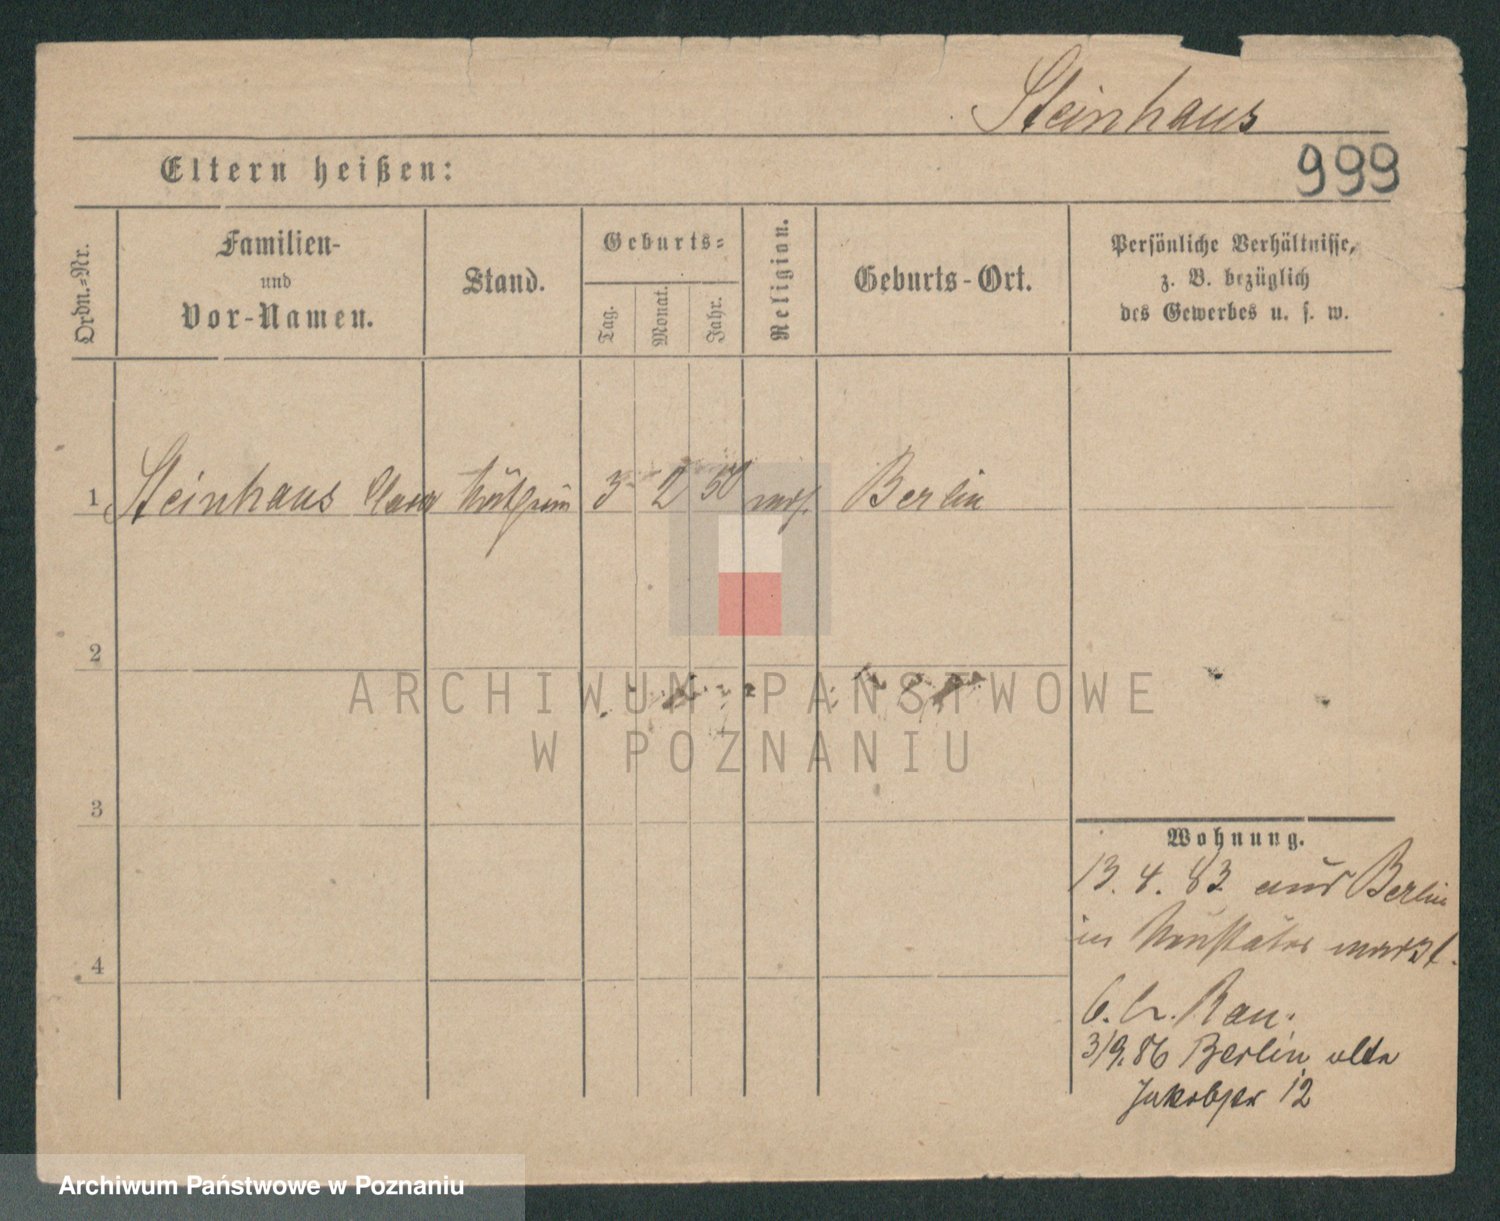 Steinhaus
999
Eltern heißen:
Ordn.-Nr.
Familien-
und
Vor-Namen.
Stand.
Geburts-
Tag.
Monat.
Jahr.
Religion.
Geburts-Ort.
Persönliche Verhältnisse,
z. B. bezüglich
des Gewerbes u. s. w.
1 Steinhaus Clara 3 2 50 Berlin
2
ARCHIWUM PAŃSTWOWE
W POZNANIU
3
Wohnung.
13. 4. 83 aus Berlin
in
4
6. Rau.
3/9.86 Berlin alte
Jakobstr 12
Archiwum Państwowe w Poznaniu